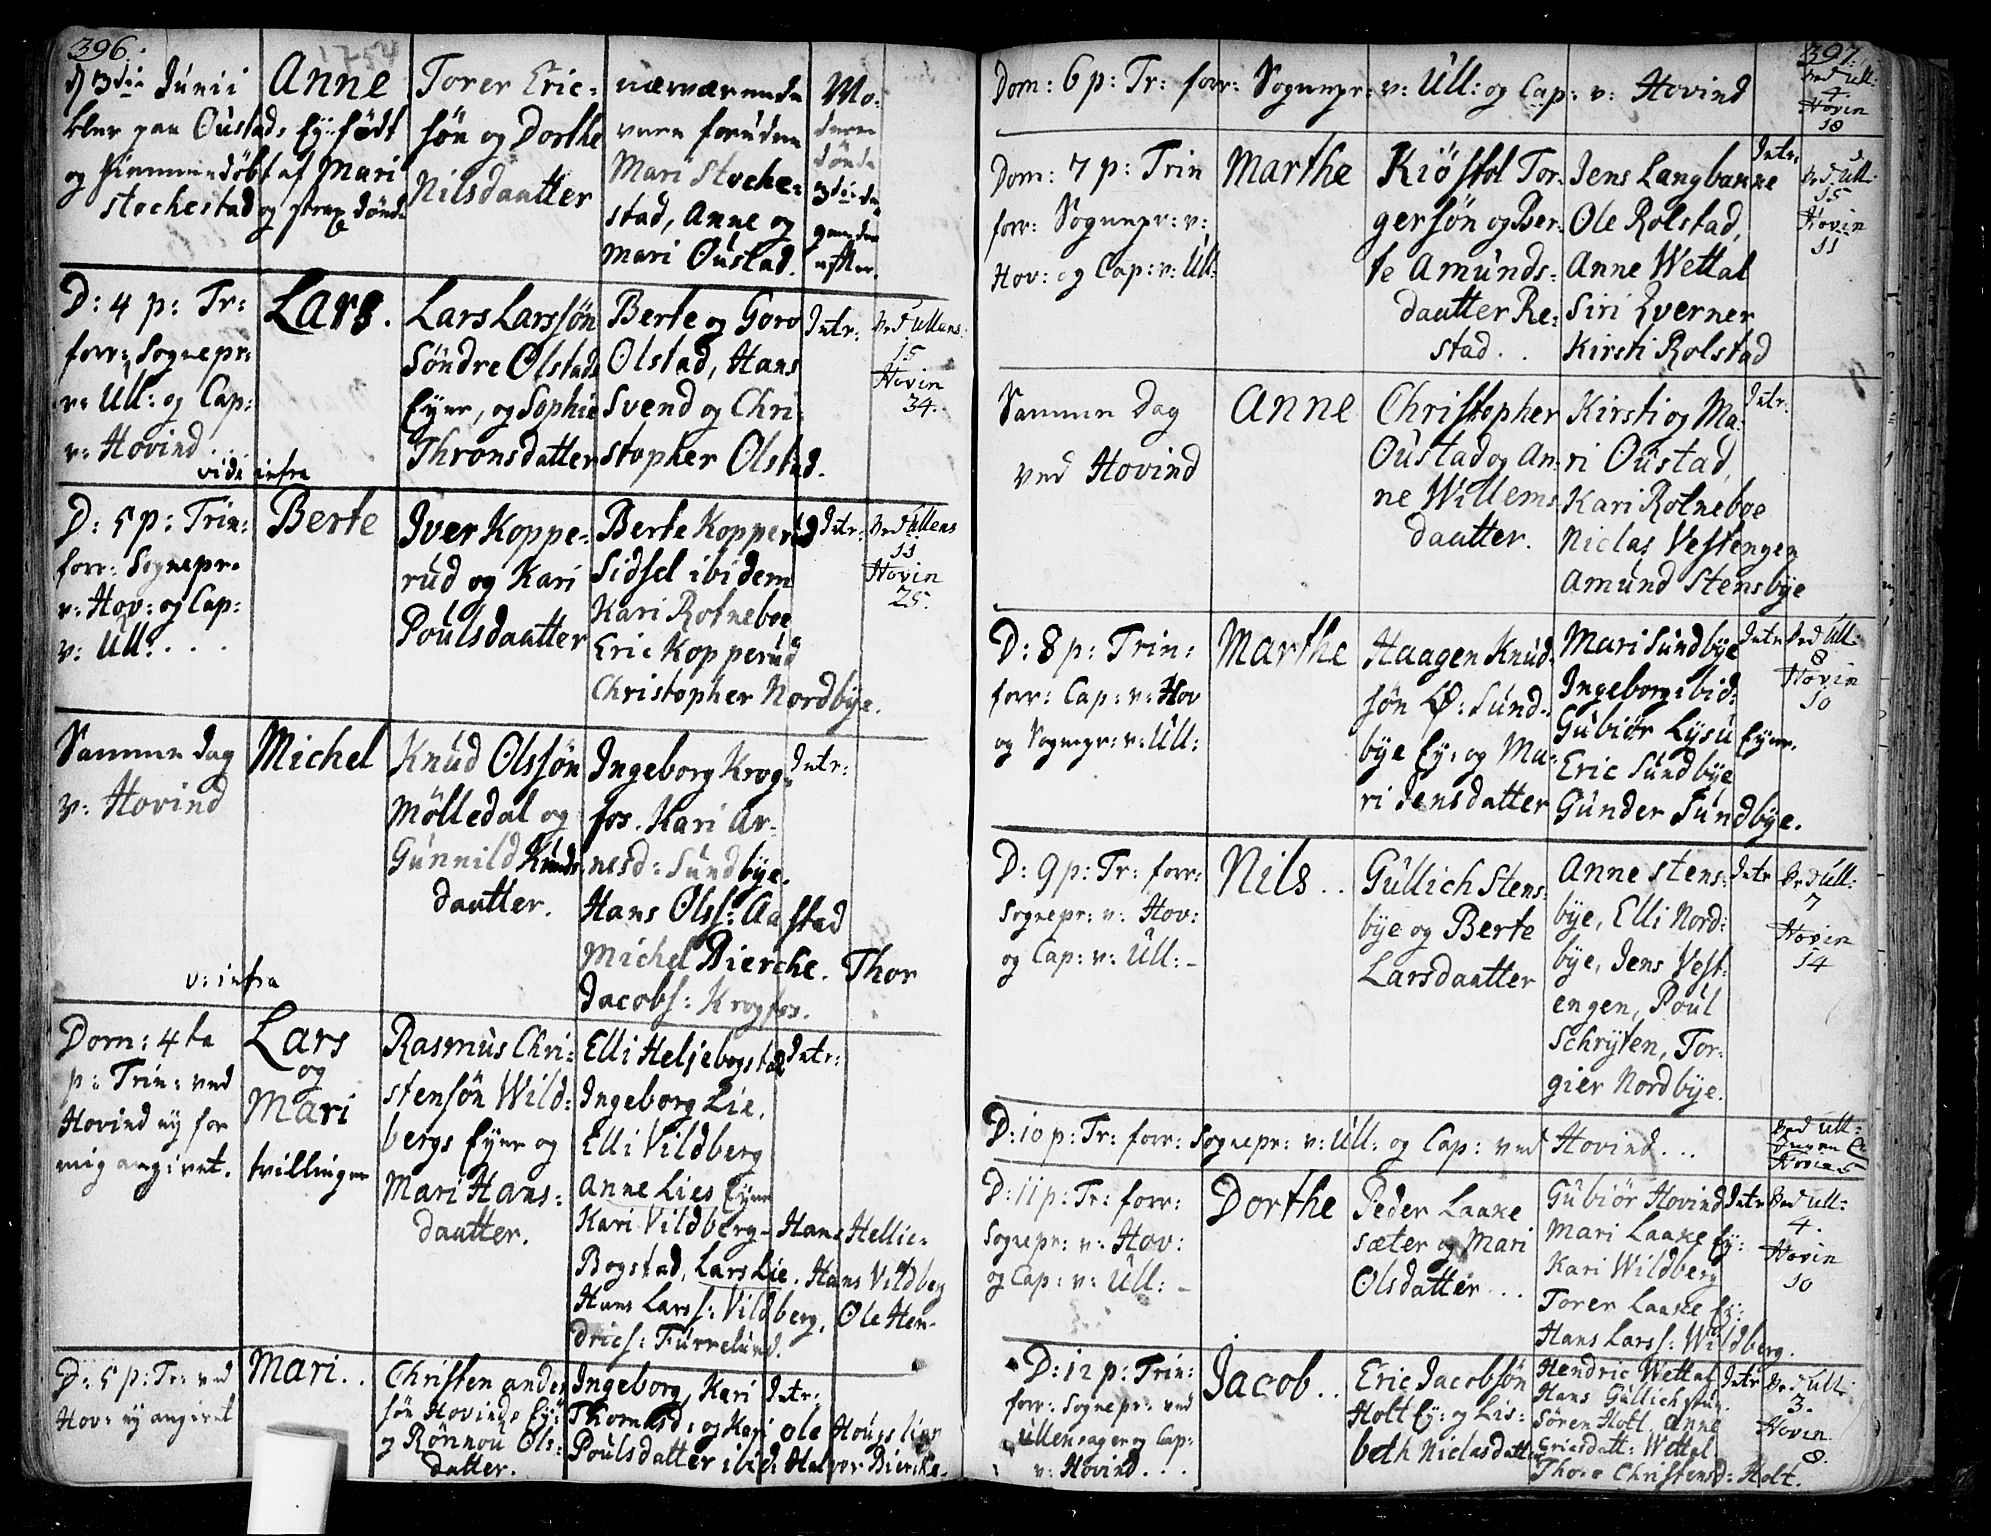 396.
1754
d 13die Junii
blev paa Oustads Ey: født
og hiemmedøbt af Mari
Stochestad og strax døde
Anne
Torer Eric=
søn og Dorthe
Nilsdaatter
nærværende
vare foruden
Mari Stoche=
stad, Anne og
Mari Oustad.
Mo=
deren
døde
3die da=
gen der
efter.
D: 4 p: Tr:
forr: Sognepr:
v: Ull: og Cap:
v: Hovind
vide infra
Lars.
Lars Larssøn
Søndre Olstads
Eyer, og Sophie
Thronsdatter
Berte og Goro
Olstad, Hans
Svend og Chri=
stopher Olstad.
Intr:
Ved Ullens:
15
Hovin
34.
D: 5 p: Trin:
forr: Sognepr:
v: Hov: og Cap:
v: Ull: . . .
Berte
Iver Koppe=
rud og Kari
Poulsdaatter
Berte Kopperud
Sidsel ibidem
Kari Rotneboe
Eric Kopperud
Christopher Nordbye.
Intr:
Ved Ullens
11
Hovin
25.
Samme Dag
v: Hovind
v: infra
Michel
Knud Olssøn
Mølledal og
Gunnild Knuds
daatter.
Ingeborg Krog=
fos. Kari Ar=
nesd: Sundbye.
Hans Olss: Aastad
Michel Bierche. Thor
Jacobs: Krogfos.
Intr:
Dom: 4ta
p: Trin: ved
Hovind ey for
mig angivet.
Lars
og
Mari
tvillinger
Rasmus Chri=
stensøn Wild=
bergs Eyer og
Mari Hans=
daatter.
Elli Heljebogstad
Ingeborg Lie.
Elli Vildberg
Anne Lies Eyer
Kari Vildberg - Hans Hellie=
Bogstad, Lars Lie. Hans Vildberg
Hans Larss: Vildberg, Ole Hen=
drics: Furrelund.
Intr:
D: 5 p: Tr: ved
Hov: ey angivet
Mari . .
Christen Anders
søn Hovinds Ey:
og Rønnou Ols=
datter.
Ingeborg, Kari
Thomesd: og Kari Ole Hougs lien
Poulsdatter ibid: Halvor Bierke.
Intr:
397.
Dom: 6 p: Tr: forr: Sognepr: v: Ull: og Cap: v: Hovind
Ved Ull:
4.
Hovin
18
Dom: 7 p: Trin
forr: Sognepr: v:
Hov: og Cap: v: Ull:
Marthe
Kiøstol Tor=
gersøn og Ber=
te Amunds=
daatter Re=
stad. .
Jens Langbanne
Ole Rolstad,
Anne Wettal
Siri Everner
Kirsti Rolstad
Intr:
Ved Ull:
15
Hovin
11
Samme Dag
ved Hovind
Anne
Christopher
Oustad og An=
ne Willems
daatter.
Kirsti og Ma=
ri Oustad,
Kari Rotneboe
Niclas Vestengen
Amund Stensbye
Intr.
D: 8 p: Trin:
forr: Cap: v: Hov
og Sognepr: v: Ull:
Marthe
Haagen Knud=
søn Ø: Sund=
bye Ey: og Ma=
ri Jensdatter
Mari Sundbye
Ingeborg ibid:
Gubiør Lysu Eyer.
Eric Sundbye
Gunder Sundbye.
Intr
Ved Ull:
8
Hovin
10
D: 9 p: Tr: forr:
Sognepr: v: Hov:
og Cap: v: Ull: -
Nils . .
Gullich Stens=
bye og Berte
Larsdaatter
Anne Stens=
bye, Elli Nord=
bye, Jens Vest=
engen, Poul
Schryten, Tor=
gier Nordbye.
Intr
Ved Ull:
7
Hovin
14
D: 10 p: Tr: forr: Sognepr: v: Ull: og Cap: ved Hovind . . .
Ved Ull:
Ingen C:
Hovin 5
D: 11 p: Tr: forr:
Sognepr: v: Hov:
og Cap: v: Ull: -
Dorthe
Peder Laake
sæter og Mari
Olsdatter . . .
Gubiør Hovind
Mari Laake Ey:
Kari Wildberg
Torer Laake Ey:
Hans Larss: Wildberg.
Intr
Ved Ull:
4.
Hovin
10
D: 12 p: Trin:
forr: Sognepr: ved
Ullensager og Cap:
v: Hovind . . .
Jacob . .
Eric Jacobsøn
Holt Ey: og Lis=
beth Niclasdatter
Hendric Wettal
Hans Gullichstun.
Søren Holt, Anne
Ericsdatt: Wettal
Thore Christensd: Holt.
Intr
Ved Ull:
3.
Hovin
8.